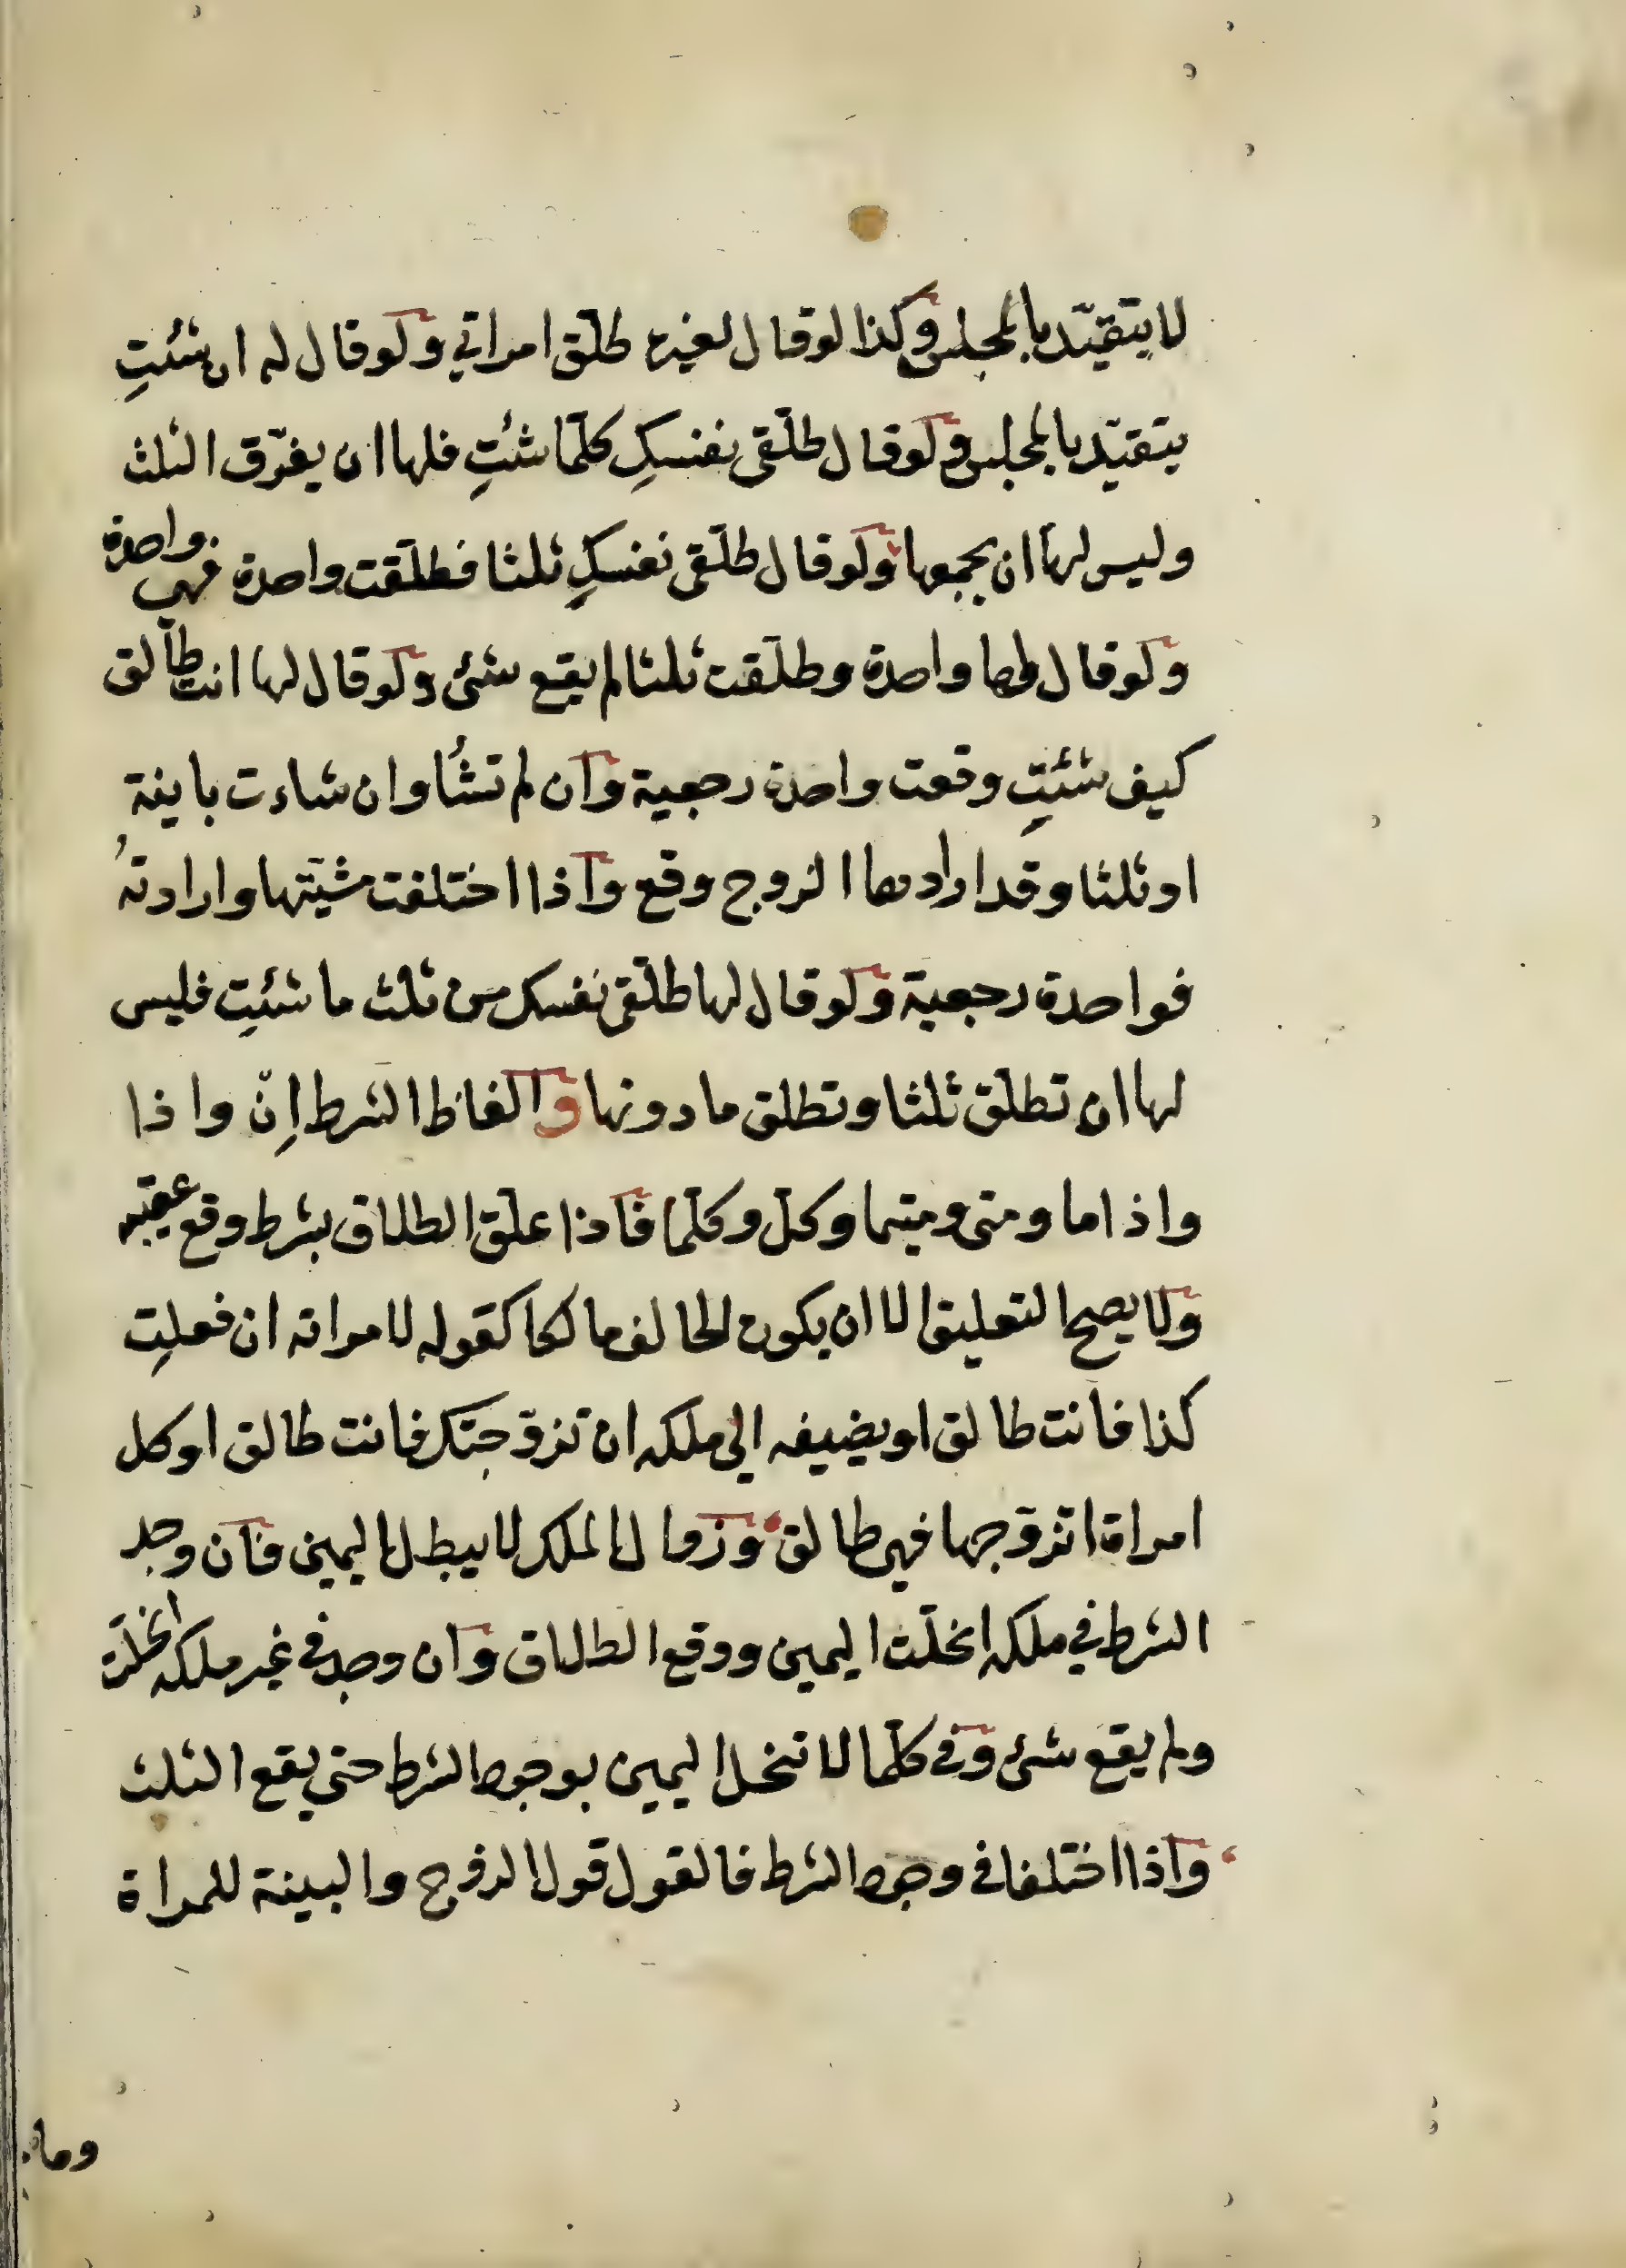 لا يتقيّد بالمجلس وكذا لو قال لغيره طلّق امراتي ولو قال له ان شئتِ
يتقيّد بالمجلس ولو قال طلّقى نفسكِ كلّما شئتِ فلها ان يفرّق الثلث
وليس لها ان يجمعها ولو قال طلّقى نفسكِ ثلثا فطلّقت واحدة فهى واحدة
ولو قال لها واحدة وطلّقت ثلثا لم يقع شئ ولو قال لها انت طالق
كيف شئتِ وقعت واحدة رجعية وان لم تشأ وان شاءت باينة
او ثلثا وقد اراد الزوج وقع واذا اختلفت مشيّتها وارادتهُ
فواحدة رجعية ولو قال لها طلّقى نفسك من ثلث ما شئتِ فليس
لها ان تطلّق ثلثا وتطلق ما دونها والفاظ الشرط اِنّ واذا
واذاما ومتى ومتيما وكلّ وكلّما فاذا علّق الطلاق بشرط وقع عقيبه
ولا يصح التعليق الا ان يكون الحالف مالكا كقوله لامراته ان فعلتِ
كذا فانت طالق او يضيفه الى ملكه ان تزوّجتك فانت طالق او كل
امراة اتزوّجها فهى طالق وزوال الملك لا يبطل اليمين فان وجد
الشرط في ملكه انحلّت اليمين ووقع الطلاق وان وجد في غير ملكه انحلّت
ولم يقع شئ وفى كلّما لا تنحل اليمين بوجود الشرط حتى يقع الثلث
واذا اختلفا فى وجود الشرط فالقول قول الزوج والبينة للمراة
وما